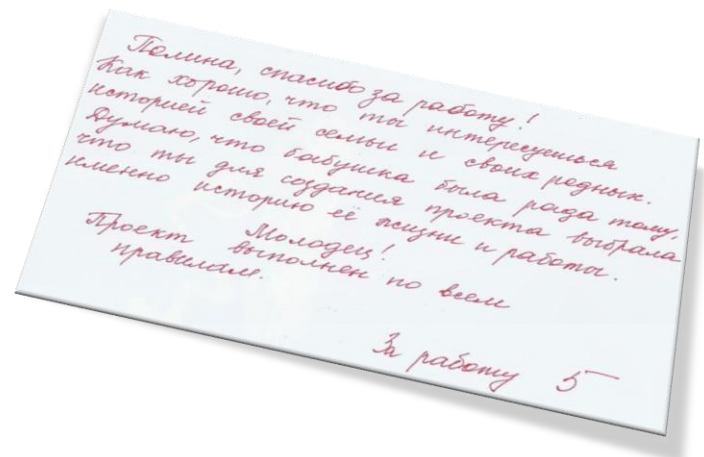 Полина, спасибо за работу!
Как хорошо, что ты интересуешься
историей своей семьи и своих родных.
Думаю, что бабушка была рада тому,
что ты для создания проекта выбрала
именно историю её жизни и работы.
Молодец!
Проект выполнен по всем
правилам.
За работу 5